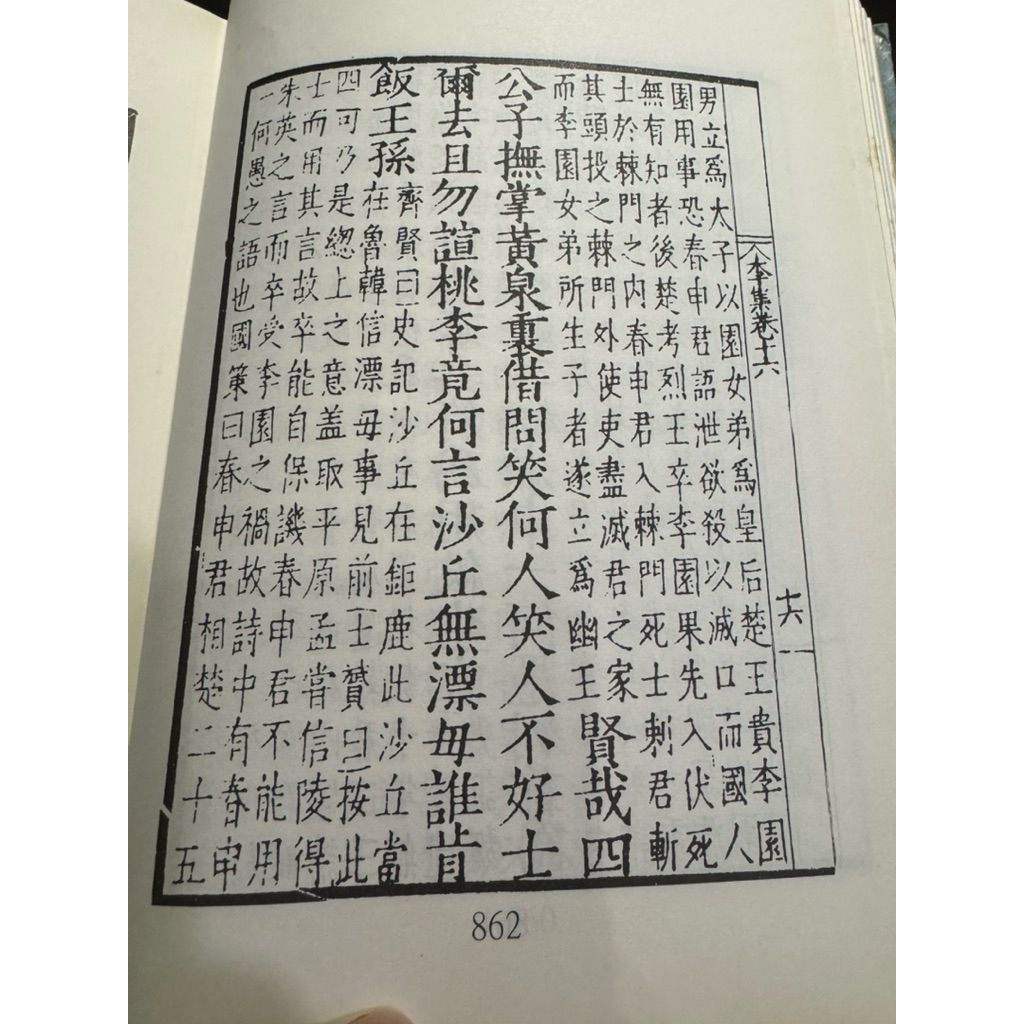 李集巻十六
十六
男立爲太子以園女弟爲皇后楚王貴李園
園用事恐春申君語泄欲殺以滅口而國人
無有知者後楚考烈王卒李園果先入伏死
士於棘門之内春申君入棘門死士刺君斬
其頭投之棘門外使吏盡滅君之家
而李園女弟所生子者遂立爲幽王
賢哉四
公子撫掌黃泉裏借問笑何人笑人不好士
爾去且勿諠桃李竟何言沙丘無漂母誰肯
飯王孫
齊賢曰史記沙丘在鉅鹿此沙丘當
在魯韓信漂母事見前士贇曰按此
四可乃是緫上之意盖取平原孟嘗信陵得
士而用其言故卒能自保譏春申君不能用
朱英之言而卒受李園之禍故詩中有春申
一何愚之語也國策曰春申君相楚二十五
862